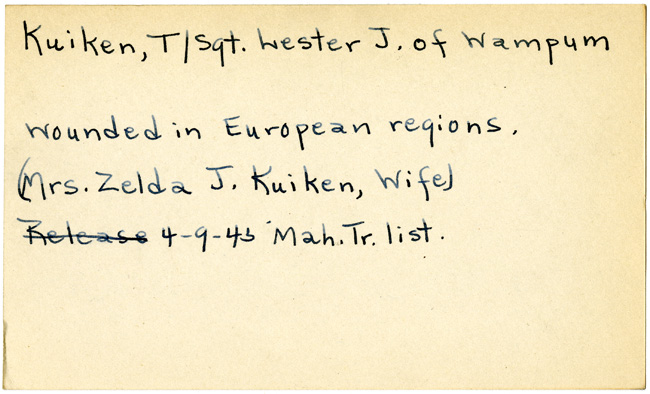 Kuiken, T/Sgt. Lester J. of Wampum
wounded in European regions.
(Mrs. Zelda J. Kuiken, Wife)
Release 4-9-45 Mah. Tr. list.